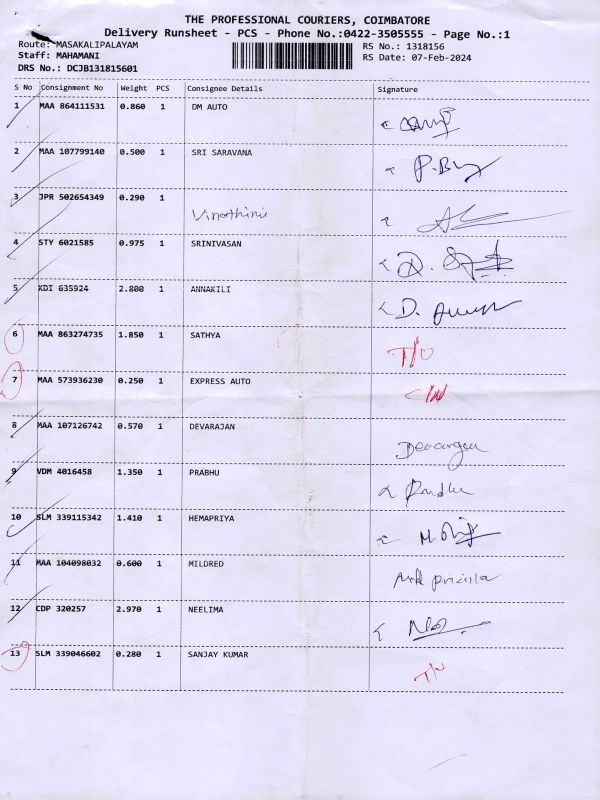 THE PROFESSIONAL COURIERS, COIMBATORE
Delivery Runsheet - PCS - Phone No.:0422-3505555 - Page No.:1
Route: MASAKALIPALAYAM RS No.: 1318156
Staff: MAHAMANI RS Date: 07-Feb-2024
DRS No.: DCJB131815601
S No Consignment No Weight PCS Consignee Details Signature
1 MAA 864111531 0.860 1 DM AUTO
2 MAA 107799140 0.500 1 SRI SARAVANA
3 JPR 502654349 0.290 1 Vinothini
4 STY 6021585 0.975 1 SRINIVASAN
5 KDI 635924 2.800 1 ANNAKILI
6 MAA 863274735 1.850 1 SATHYA
7 MAA 573936230 0.250 1 EXPRESS AUTO
8 MAA 107126742 0.570 1 DEVARAJAN
9 VDM 4016458 1.350 1 PRABHU
10 SLM 339115342 1.410 1 HEMAPRIYA
11 MAA 104098032 0.600 1 MILDRED
12 CDP 320257 2.970 1 NEELIMA
13 SLM 339046602 0.280 1 SANJAY KUMAR